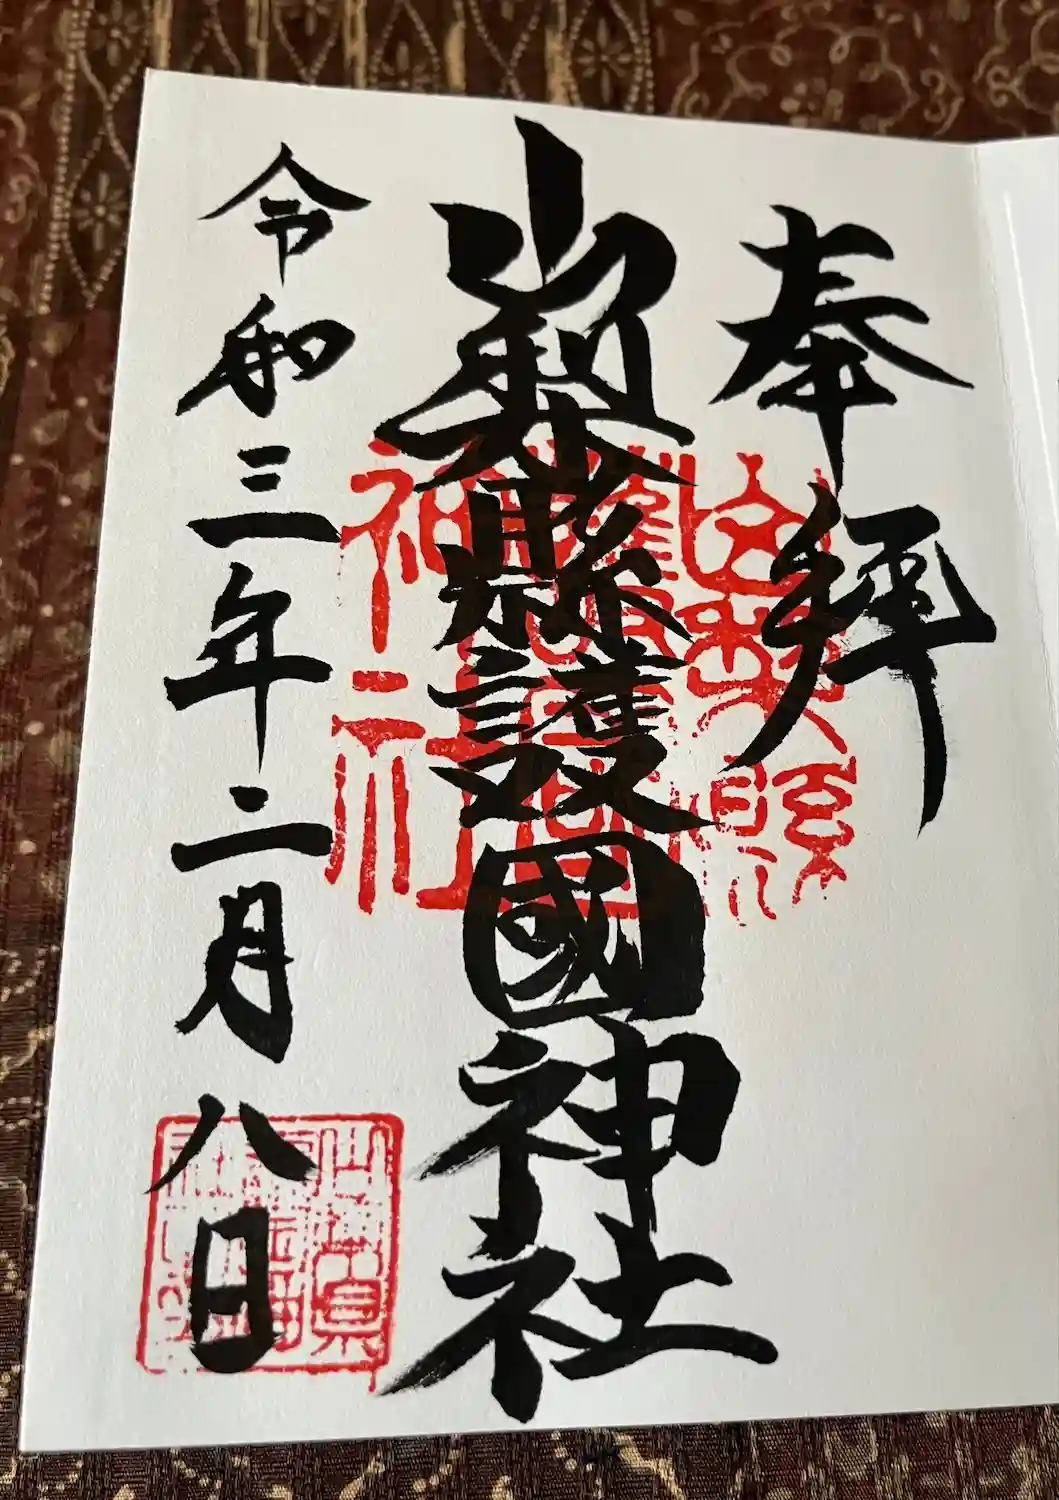 奉拝
山梨縣護國神社
令和三年二月八日
山梨縣
護國
神社